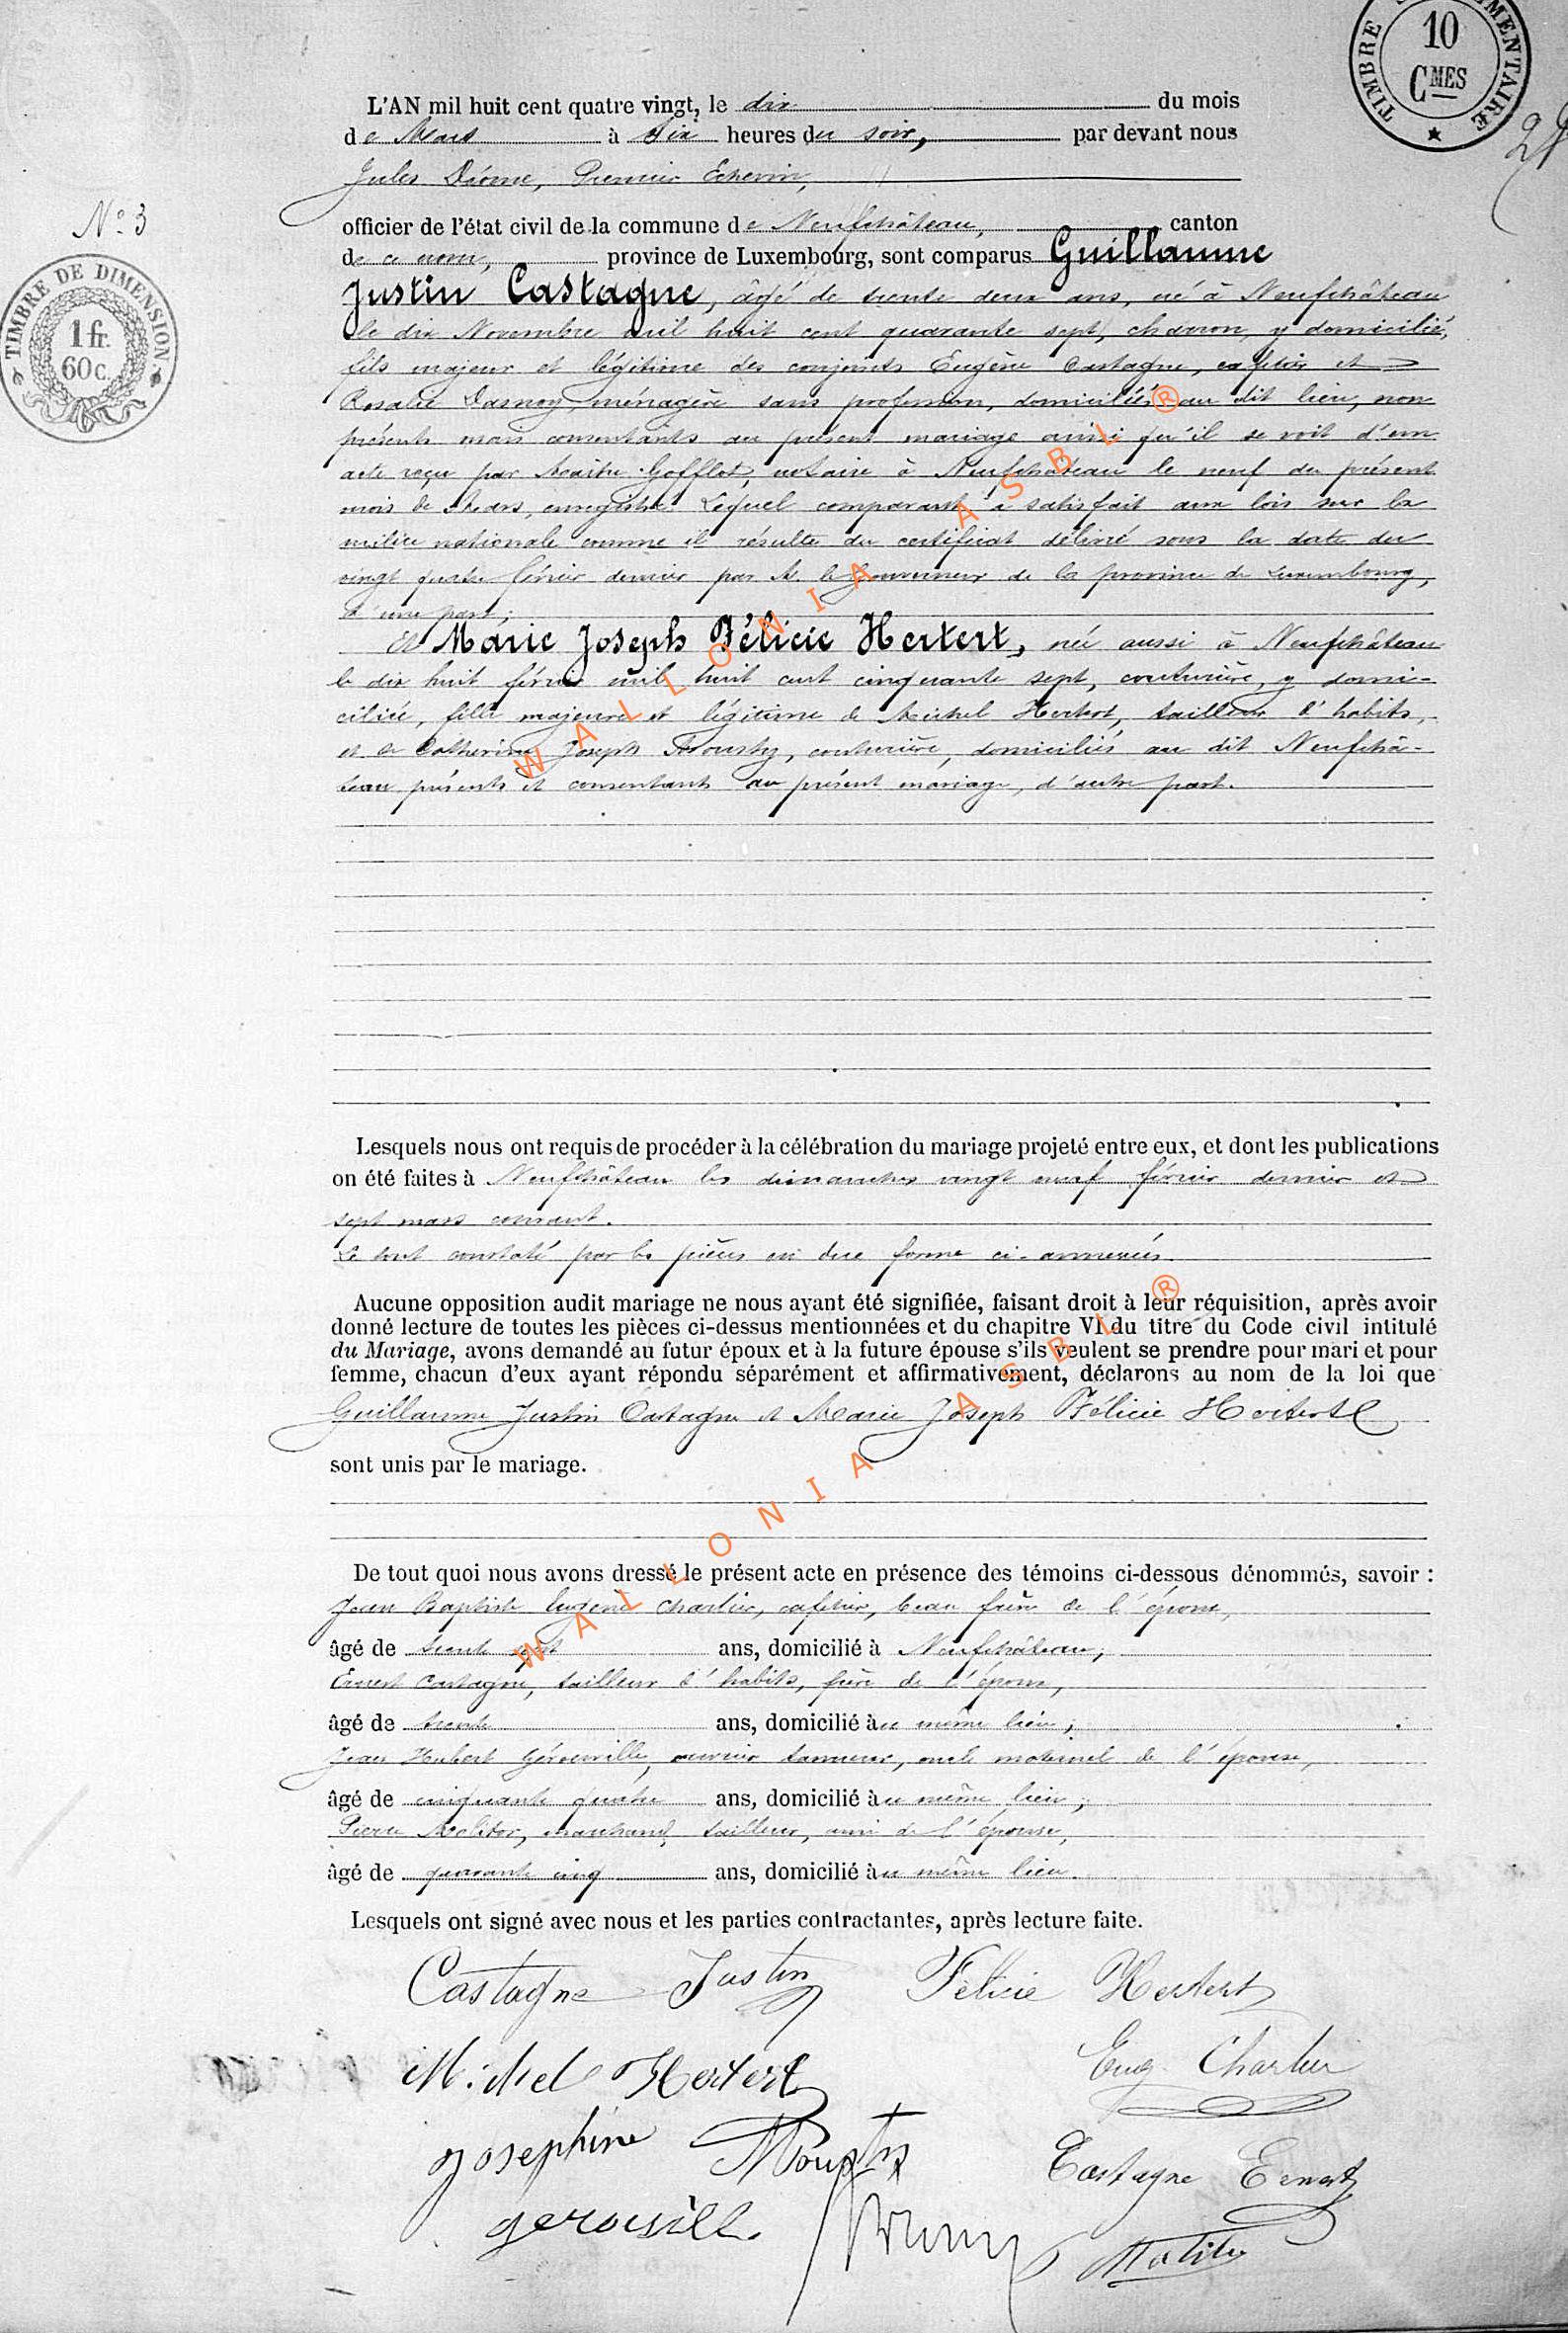 TIMBRE SUPPLÉMENTAIRE
10
CMES
L'AN mil huit cent quatre vingt, le dix du mois
de Mars à six heures du soir, par devant nous
Jules Premier Echevin,
N° 3
officier de l'état civil de la commune de Neufchâteau, canton
de ce nom, province de Luxembourg, sont comparus Guillaume
TIMBRE DE DIMENSION
1 fr.
60c.
Justin Castagne, âgé de trente deux ans, né à Neufchâteau
le dix Novembre mil huit cent quarante sept, charron, y domicilié,
fils majeur et légitime des conjoints Eugène Castagne, cafetier et
Rosalie Dasnoy, ménagère sans profession, domiciliés au dit lieu, non
présents mais consentants au présent mariage ainsi qu'il se voit d'un
acte reçu par Maître Gofflot, notaire à Neufchâteau le neuf du présent
mois de Mars, enregistré. Lequel comparant a satisfait aux lois sur la
milice nationale comme il résulte du certificat délivré sous la date du
vingt quatre février dernier par M. le Gouverneur de la province de Luxembourg,
d'une part;
Et Marie Joseph Félicie Hertert, née aussi à Neufchâteau
le dix huit février mil huit cent cinquante sept, couturière, y domi-
ciliée, fille majeure et légitime de Michel Hertert, tailleur d'habits,
et de Catherine Joseph Mousty, couturière, domiciliés au dit Neufchâ-
teau présents et consentants au présent mariage, d'autre part.
Lesquels nous ont requis de procéder à la célébration du mariage projeté entre eux, et dont les publications
on été faites à Neufchâteau les dimanches vingt neuf février dernier et
sept mars courant.
Le tout constaté par les pièces en due forme ci-annexées.
Aucune opposition audit mariage ne nous ayant été signifiée, faisant droit à leur réquisition, après avoir
donné lecture de toutes les pièces ci-dessus mentionnées et du chapitre VI du titre du Code civil intitulé
du Mariage, avons demandé au futur époux et à la future épouse s'ils veulent se prendre pour mari et pour
femme, chacun d'eux ayant répondu séparément et affirmativement, déclarons au nom de la loi que
Guillaume Justin Castagne et Marie Joseph Félicie Hertert
sont unis par le mariage.
De tout quoi nous avons dressé le présent acte en présence des témoins ci-dessous dénommés, savoir :
Jean Baptiste Eugène Charlier, cafetier, beau frère de l'époux,
âgé de trente sept ans, domicilié à Neufchâteau;
Ernest Castagne, tailleur d'habits, frère de l'époux,
âgé de trente ans, domicilié au même lieu;
Jean Hubert Gérouville, ouvrier tanneur, oncle maternel de l'épouse,
âgé de cinquante quatre ans, domicilié au même lieu;
Pierre Molitor, marchand tailleur, ami de l'épouse,
âgé de quarante cinq ans, domicilié au même lieu.
Lesquels ont signé avec nous et les parties contractantes, après lecture faite.
Castagne Justin Félicie Hertert
Michel Hertert Eug. Charlier
Josephine Mousty Castagne Ernest
gerouvill
WALLONIA ASBL ®
WALLONIA ASBL ®